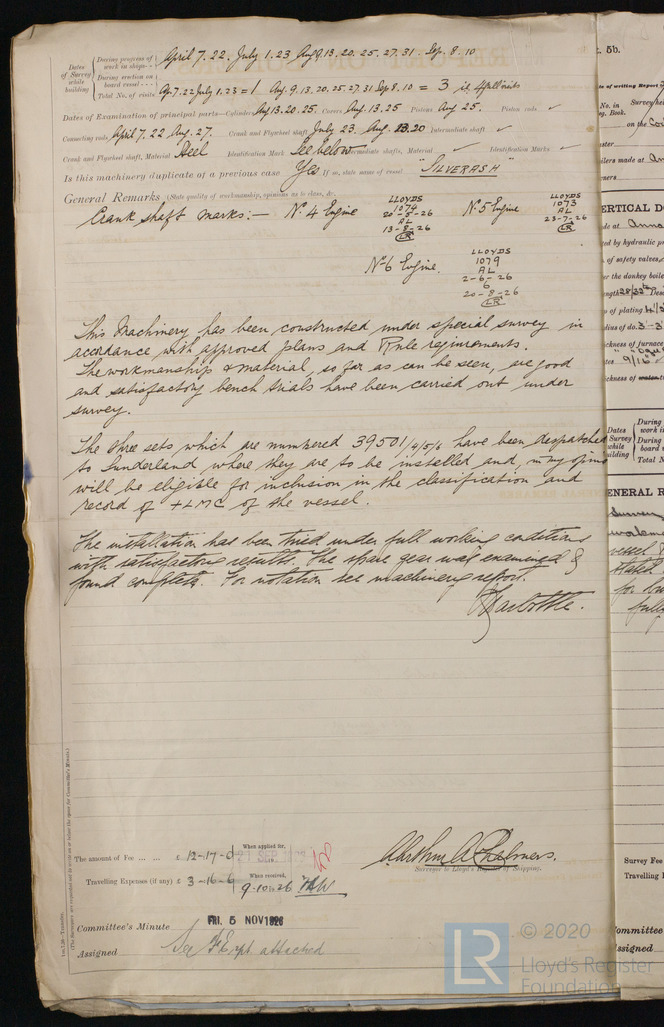 Dates of Survey while building
During progress of work in shops - - April 7. 22. July 1. 23 Aug 9. 13. 20. 25. 27. 31. Sep. 8. 10
During erection on board vessel - - -
Total No. of visits Ap. 7. 22 July 1. 23 = 1 Aug. 9. 13. 20. 25. 27. 31 Sep 8. 10 = 3
Dates of Examination of principal parts—Cylinders Aug 13. 20. 25. Covers Aug. 13. 25 Pistons Aug 25. Piston rods ✓
Connecting rods April 7. 22 Aug. 27. Crank and Flywheel shaft July 23 Aug. 13. 20 Intermediate shaft ✓
Crank and Flywheel shaft, Material Steel Identification Mark See below Intermediate shafts, Material ✓ Identification Marks ✓
Is this machinery duplicate of a previous case Yes If so, state name of vessel "SILVERASH"
General Remarks (State quality of workmanship, opinions as to class, &c.
Crank shaft marks:— No. 4 Engine
LLOYDS
1074
20-5-26
AL
13-8-26
LR
No 5 Engine
LLOYDS
1073
AL
23-7-26
LR
No 6 Engine.
LLOYDS
1079
AL
2-6-26
6
20-8-26
LR
This Machinery has been constructed under special survey in
accordance with approved plans and Rule requirements.
The workmanship & material, so far as can be seen, are good
and satisfactory bench trials have been carried out under
survey.
The three sets which are numbered 39501/4/5/6 have been despatched
to Sunderland where they are to be installed and, in my
will be eligible for inclusion in the classification and
record of +LMC of the vessel.
The installation has been tried under full working conditions
with satisfactory results. The spare gear was examined &
found complete. For notation see machinery report.
The amount of Fee ... ... £ 12-17-0
When applied for,
21 SEP
Travelling Expenses (if any) £ 3-16-6
When received,
9.10.26
Arthur A Chalmers.
Surveyor to Lloyd's Register of Shipping.
Committee's Minute FRI. 5 NOV 1926
Assigned See F.E. rpt attached
(The Surveyors are requested not to write on or below the space for Committee's Minute.)
5b.
of writing Report
No. in
Survey held
Book.
on the
ilers made at
ERTICAL
by hydraulic
of safety valves,
the donkey
of plating
ckness of furnace
9/16
Dates
Survey
while
building
During
work
During
board
Total
GENERAL
Survey
vessel
stated
for
Survey Fee
Travelling
Committee
Assigned
LR © 2020
Lloyd's Register
Foundation